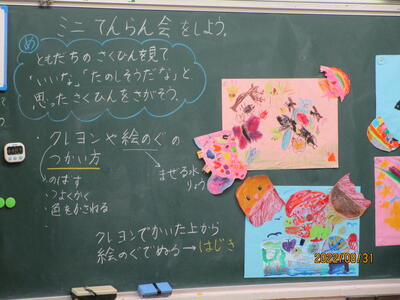 ミニ てんらん会をしよう。
め
ともだちのさくひんを見て
「いいな」「たのしそうだな」と
思ったさくひんをさがそう。
クレヨンや絵のぐの
つかい方
まぜる水
りょう
・のばす
・つよくかく
・色をかさねる
クレヨンでかいた上から
絵のぐでぬる→はじき
2022/08/31